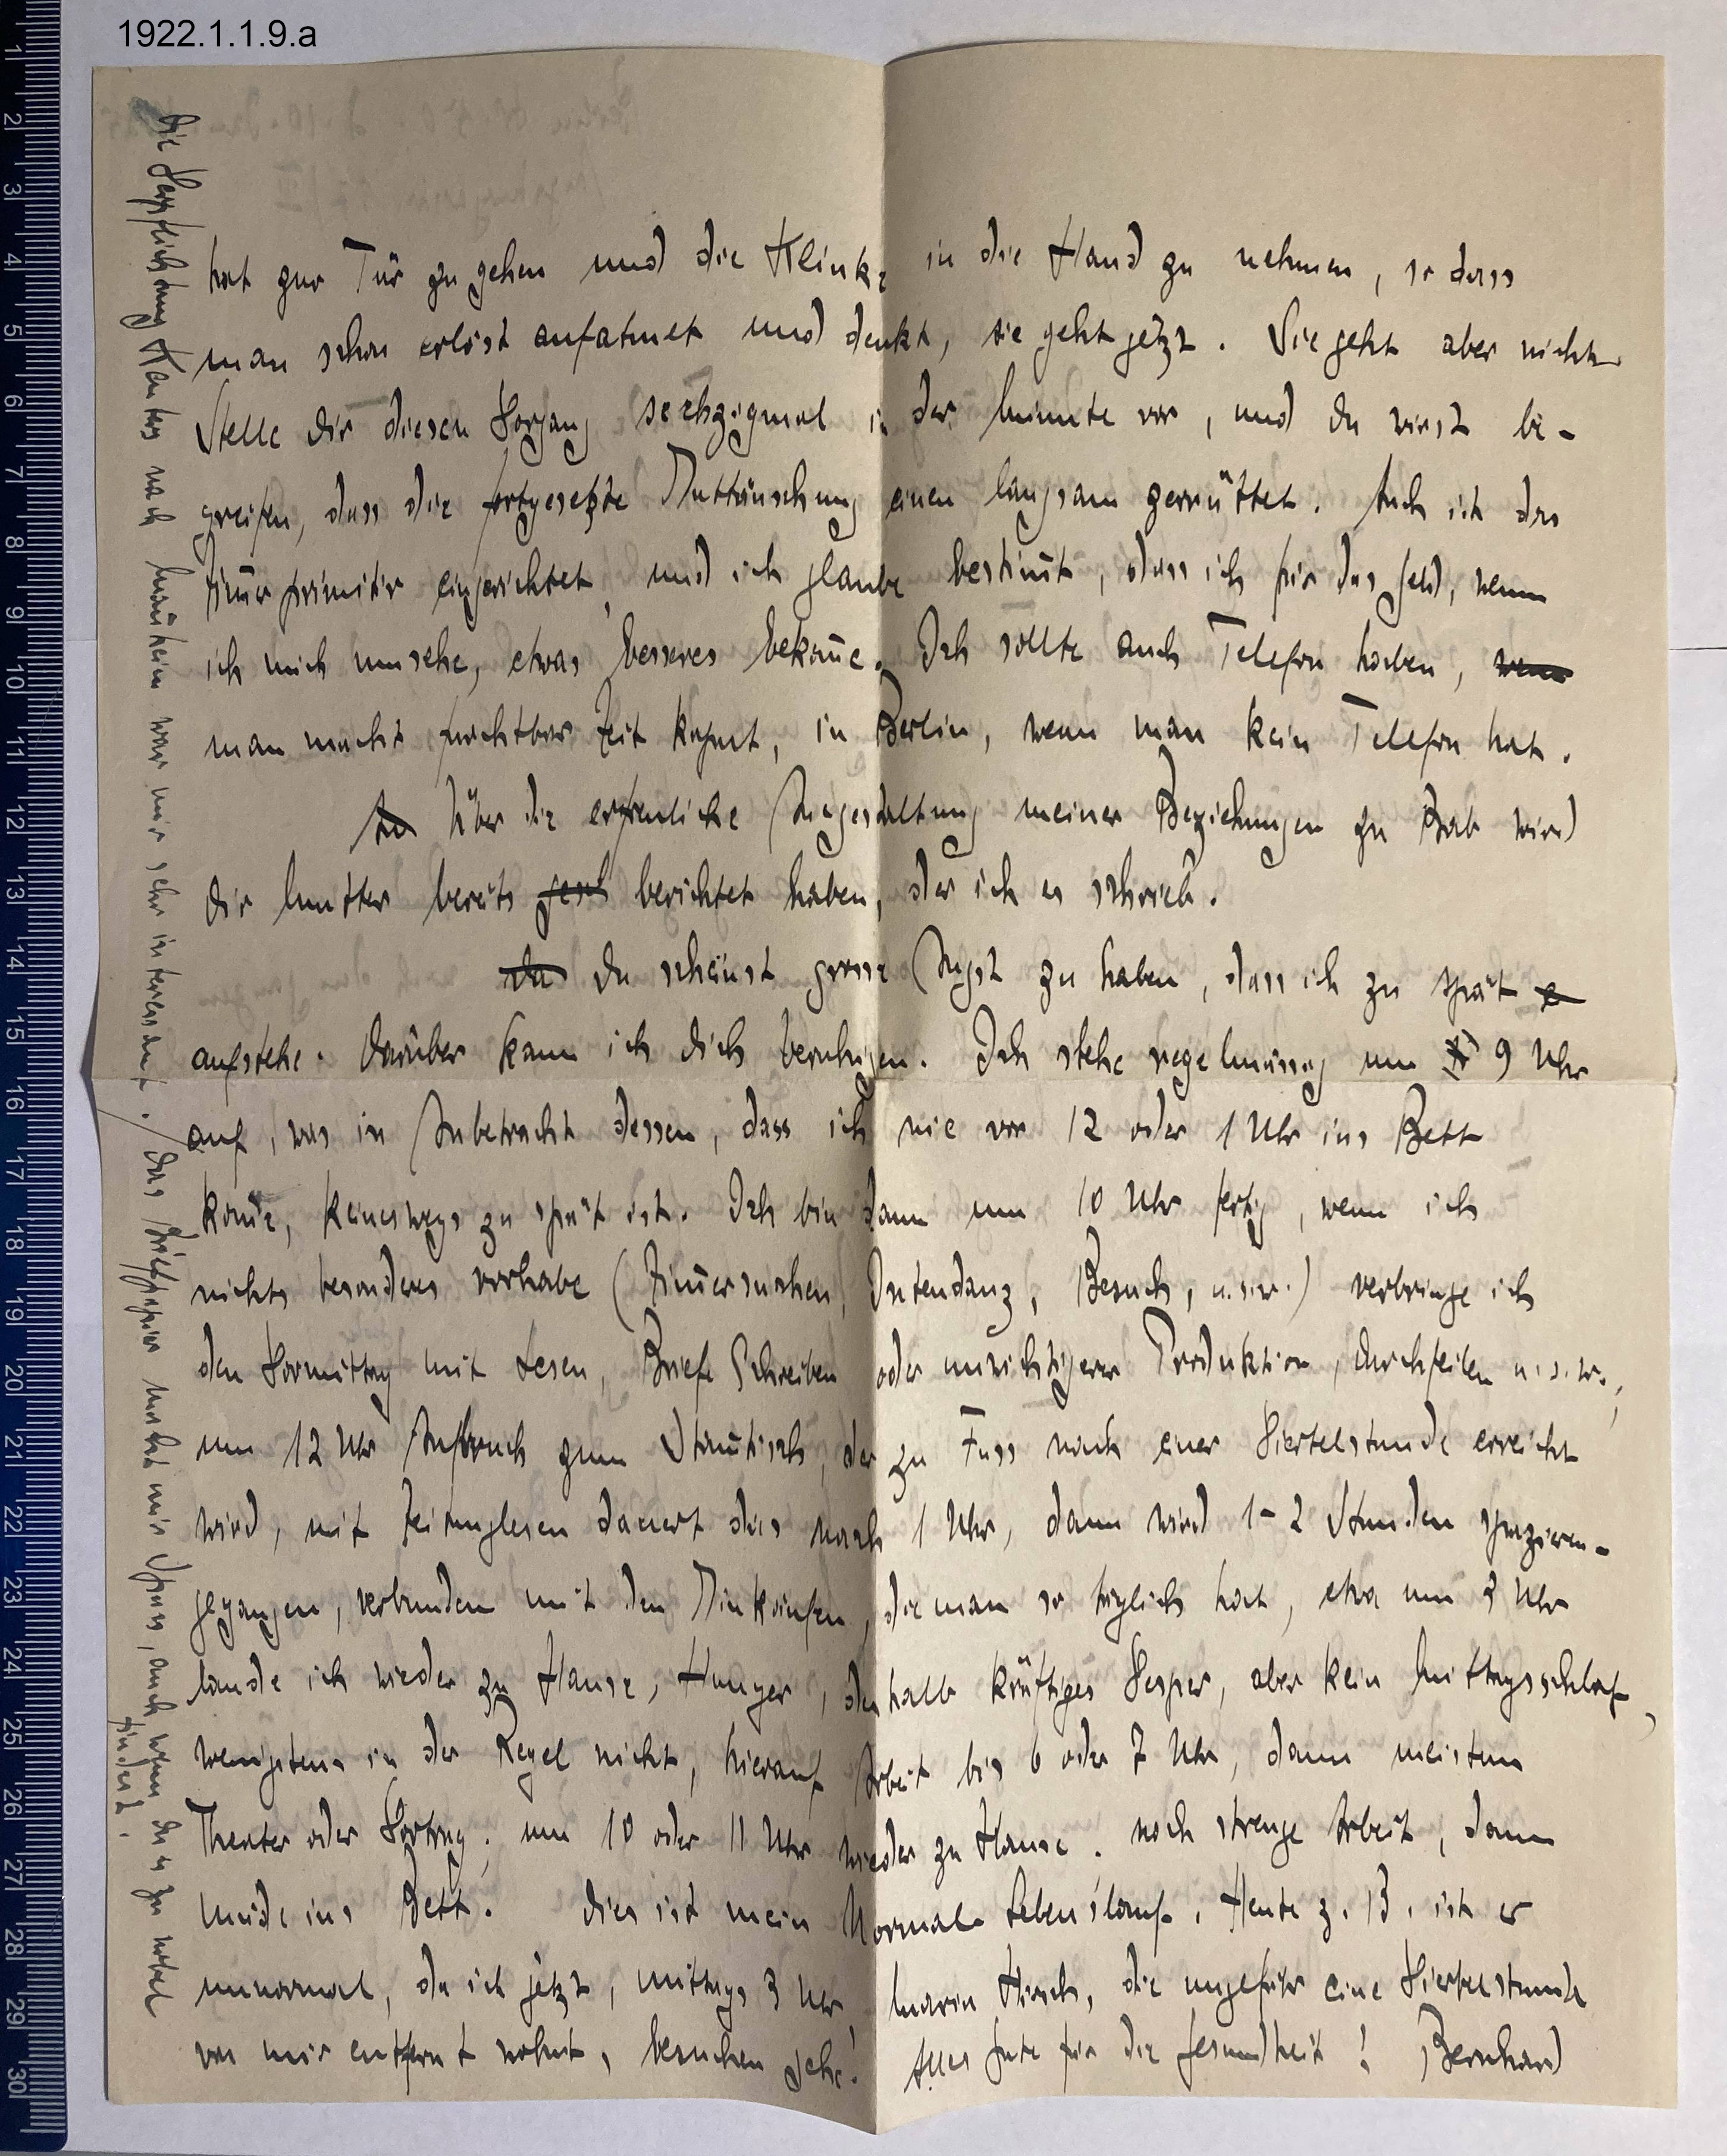 1922.1.1.9.a
hat zur Tür zu gehen und die Klinke in die Hand zu nehmen, so dass
man schon erlöst aufatmet und denkt, sie geht jetzt. Sie geht aber nicht
Stelle dir diesen Vorgang sechzigmal in der Minute vor, und du wirst be-
greifen, dass die fortgesetzte Enttäuschung einen langsam zerrüttet. Auch ist das
Zim̄er primitiv eingerichtet, und ich glaube bestim̄t, dass ich für das Geld, wenn
ich mich umsehe, etwas besseres bekom̄e. Ich sollte auch Telefon haben, wenn
man macht furchtbar Zeit kaput, in Berlin, wenn man kein Telefon hat.
Über die erfreuliche Ausgestaltung meiner Beziehungen zu Bab wird
dir Mutter bereits berichtet haben, der ich es schrieb.
du Du scheinst grosse Angst zu haben, dass ich zu spät e
aufstehe. Darüber kann ich dich beruhigen. Ich stehe regelmässig um 9 Uhr
auf, was in Anbetracht dessen, dass ich nie vor 12 oder 1 Uhr ins Bett
kom̄e, keineswegs zu spät ist. Ich bin dann um 10 Uhr fertig, wenn ich
nichts besonderes vorhabe (Zim̄ersuchen, Intendanz, Besuch, u.s.w.) verbringe ich
den Vormittag mit Lesen, Briefe Schreiben oder unwichtigerer Produktion, Durchfeilen u.s.w.,
um 12 Uhr Aufbruch zum Stam̄tisch, der zu Fuss nach einer Viertelstunde erreicht
wird, mit Zeitunglesen dauert das nach 1 Uhr, dann wird 1-2 Stunden spazieren-
gegangen, verbunden mit den Einkäufen, die man so täglich hat, etwa um 3 Uhr
lande ich wieder zu Hause, Hunger, deshalb kräftiges Vesper, aber kein Mittagsschlaf,
wenigstens in der Regel nicht, hierauf Arbeit bis 6 oder 7 Uhr, dann meistens
Theater oder Vortrag; um 10 oder 11 Uhr wieder zu Hause. noch strenge Arbeit, dann
müde ins Bett. Dies ist mein Normal Lebenslauf. Heute z. B. ist er
unnormal, da ich jetzt, mittags 3 Uhr Maria Hirsch, die ungefähr eine Viertelstunde
von mir entfernt wohnt, besuchen gehe! Alles Gute für die Gesundheit! Bernhard
Die Verpflichtung nach Mannheim war mir sehr interessant. / Das Briefpapier macht mir Spass, auch wenn du es zu nobel
findest.